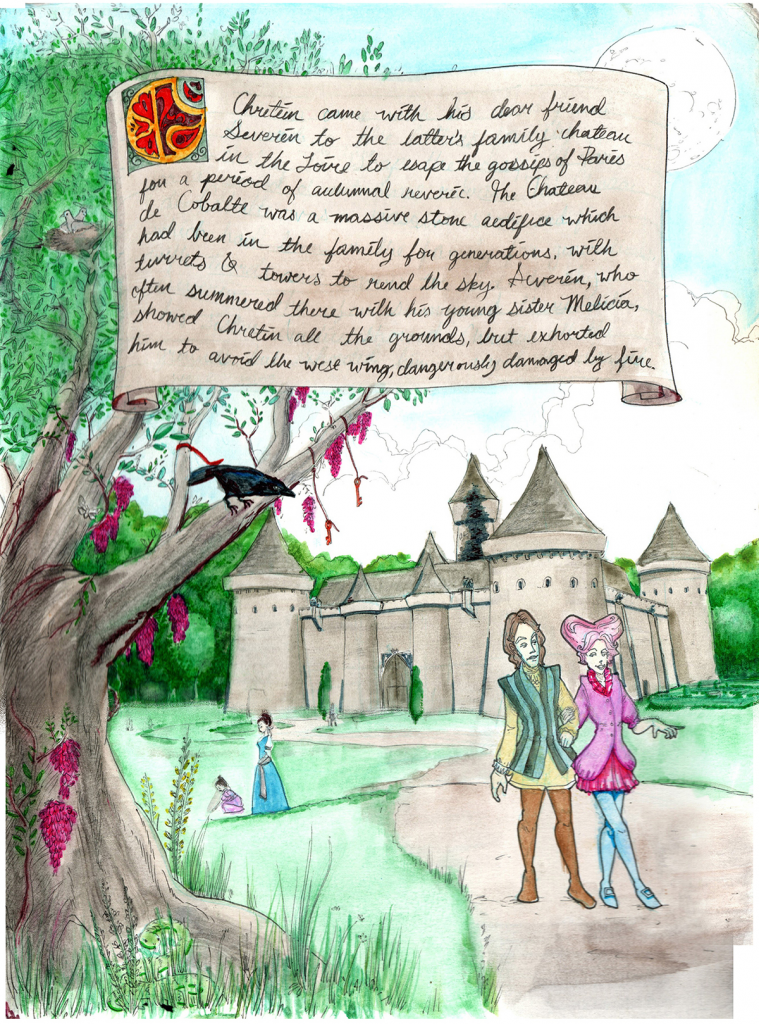 Chretién came with his dear friend
Severén to the latter's family chateau
in the Loire to esape the gossips of Paris
for a period of autumnal reverie. The Chateau
de Cobalte was a massive stone aedifice which
had been in the family for generations, with
turrets & towers to rend the sky. Severén, who
often summered there with his young sister Melicia,
showed Chretin all the grounds, but exhorted
him to avoid the west wing, dangerously damaged by fire.